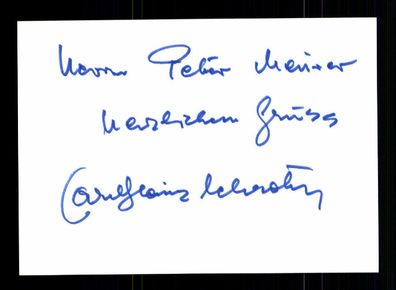 Herrn Peter
herzlichen Gruss
Carlheinz Schroth